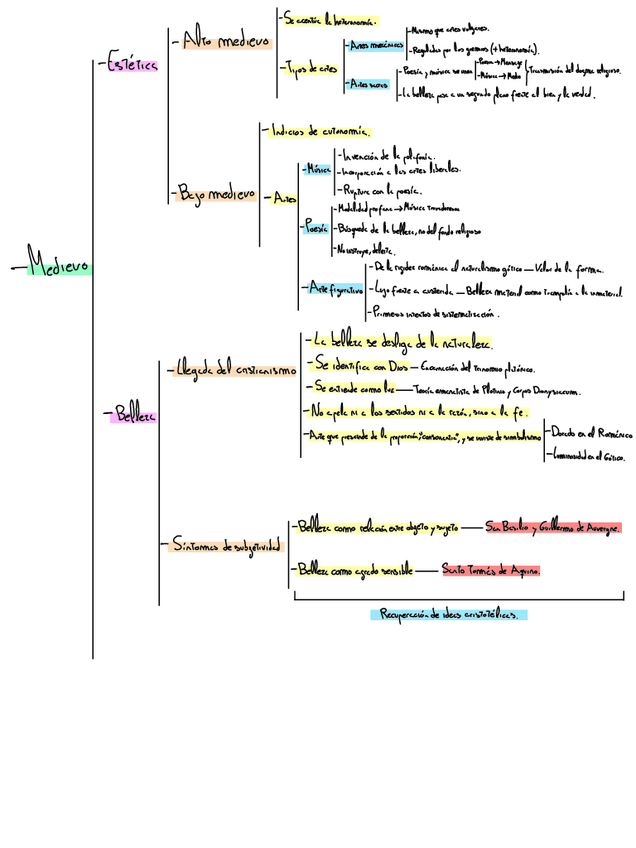 Medievo
- Estética
- Alto medievo
- Se acentúa la heteronomía.
- Tipos de artes
- Artes mecánicas
- Mismo que artes vulgares.
- Reguladas por los gremios (+ heteronomía).
- Artes sacras
- Poesía y música se unen
- Poesía → Mensaje
- Música → Medio
Transmisión del dogma religioso.
- La belleza pasa a un segundo plano frente al bien y la verdad.
- Bajo medievo
- Indicios de autonomía.
- Artes
- Música
- Invención de la polifonía.
- Incorporación a las artes liberales.
- Ruptura con la poesía.
- Poesía
- Modalidad profana → Música trovadoresca
- Búsqueda de la belleza, no del fondo religioso
- No instruye, deleita.
- Arte figurativo
- De la rigidez románica al naturalismo gótico — Valor de la forma.
- Lujo frente a austeridad — Belleza material como trampolín a la inmaterial.
- Primeros intentos de sistematización.
- Belleza
- Llegada del cristianismo
- La belleza se desliga de la naturaleza.
- Se identifica con Dios — Encarnación del Trinomio platónico.
- Se entiende como luz — Teoría emanatista de Plotino y Corpus Dionysiacum.
- No apela ni a los sentidos ni a la razón, sino a la fe.
- Arte que prescinde de la proporción, "consonantia", y se inunda de simbolismo
- Dorado en el Románico
- Luminosidad en el Gótico.
- Síntomas de subjetividad
- Belleza como relación entre objeto y sujeto — San Basilio y Guillermo de Auvergne.
- Belleza como agrado sensible — Santo Tomás de Aquino.
Recuperación de ideas aristotélicas.